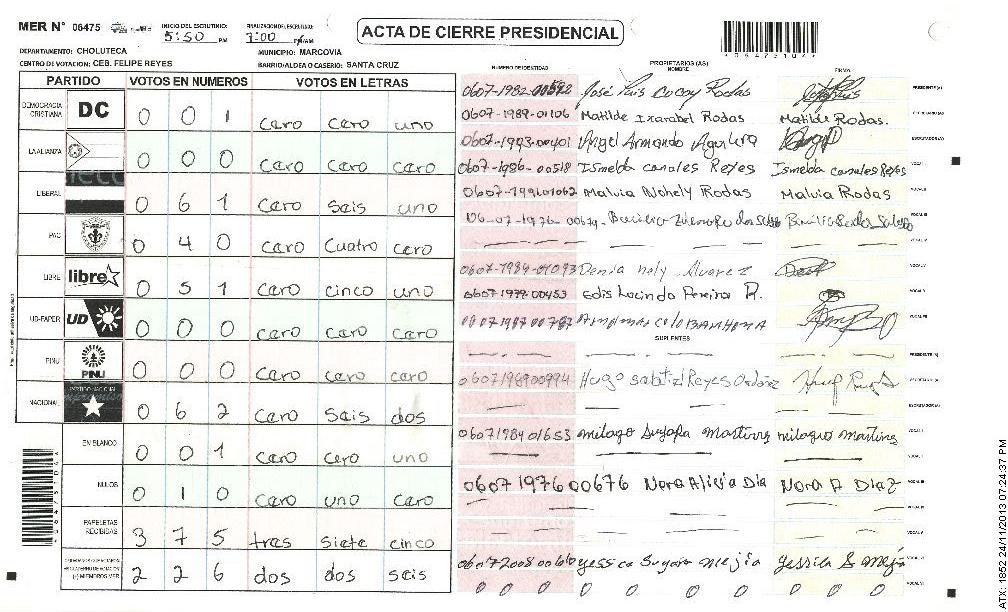 MER N° 06475 INICIO DEL ESCRUTINIO: 5:50 PM FINALIZACION DEL ESCRUTINIO: 7:00 PM/AM ACTA DE CIERRE PRESIDENCIAL
DEPARTAMENTO: CHOLUTECA MUNICIPIO: MARCOVIA
CENTRO DE VOTACION: CEB. FELIPE REYES BARRIO/ALDEA O CASERIO: SANTA CRUZ
PARTIDO VOTOS EN NUMEROS VOTOS EN LETRAS
DEMOCRACIA CRISTIANA DC 0 0 1 cero cero uno
LA ALIANZA 0 0 0 cero cero cero
LIBERAL 0 6 1 cero seis uno
PAC 0 4 0 cero cuatro cero
LIBRE libre 0 5 1 cero cinco uno
UD-FAPER UD 0 0 0 cero cero cero
PINU PINU 0 0 0 cero cero cero
NACIONAL 0 6 2 cero seis dos
EN BLANCO 0 0 1 cero cero uno
NULOS 0 1 0 cero uno cero
PAPELETAS RECIBIDAS 3 7 5 tres siete cinco
2 2 6 dos dos seis
NUMERO DE IDENTIDAD PROPIETARIOS (AS) NOMBRE FIRMA
0607-1982-00592 José Luis Rodas PRESIDENTE (A)
0607-1989-01106 Matilde Ixarabel Rodas Matilde Rodas. SECRETARIO (A)
0607-1993-00401 Angel Armando Aguilera ESCRUTADOR (A)
0607-1986-00518 Ismelda canales Reyes Ismelda canales Reyes VOCAL I
0607-199601062 Malvia Nohely Rodas Malvia Rodas VOCAL II
06-07-1976-00674 VOCAL III
0607-1984-01093 Denia nely Alvarez
0607-1979-00453 Edis Lucinda Pereira R.
SUPLENTES
PRESIDENTE (A)
0607198900994 Hugo Reyes Ordóñez SECRETARIO (A)
ESCRUTADOR (A)
0607198401653 milagro Suyapa martinez milagro martinez VOCAL I
0607197600676 Nora Alicia Dia Nora A Diaz VOCAL III
0607200800610 yessica Suyapa mejia yessica S mejia
0 0 0 0 0 0 0 0 0
ATX: 1852 24/11/2013 07:24:37 PM